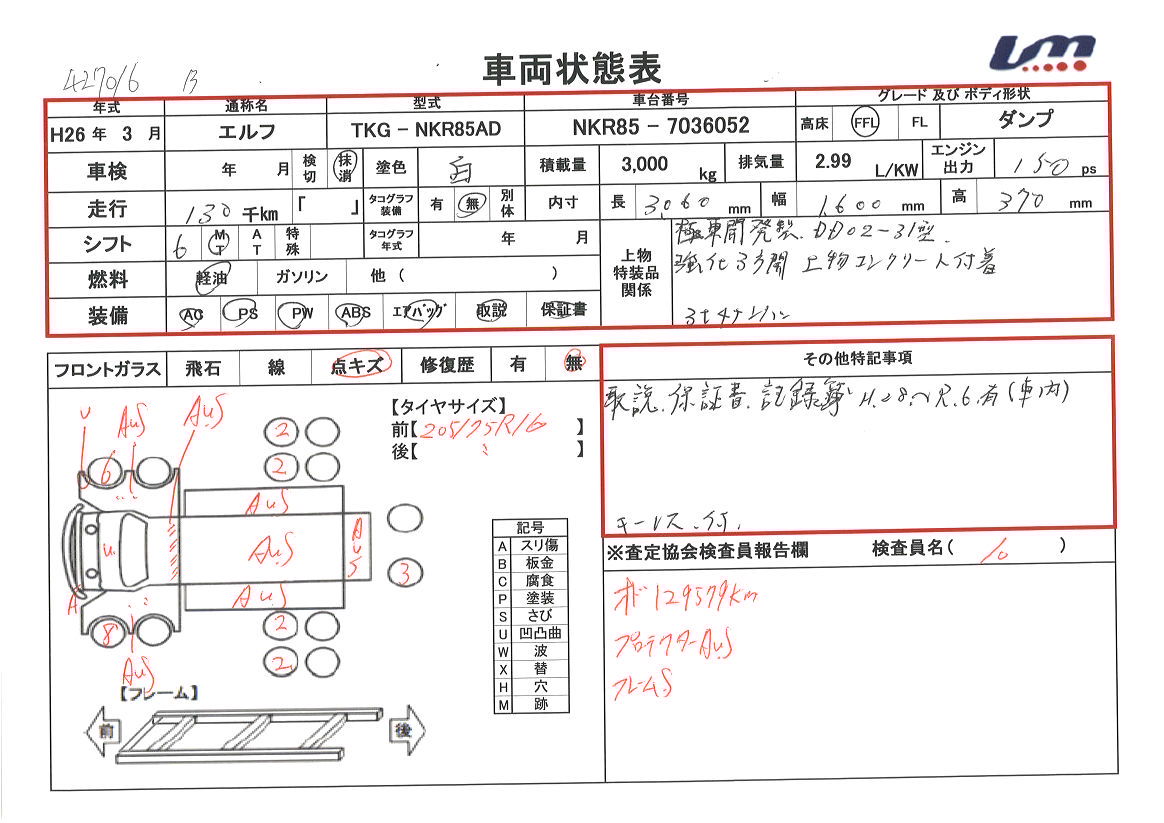 車両状態表
um
427016 B
年式 通称名 型式 車台番号 グレード 及び ボディ形状
H26 年 3 月 エルフ TKG - NKR85AD NKR85 - 7036052 高床 FFL FL ダンプ
車検 年 月 検切 抹消 塗色 白 積載量 3,000 kg 排気量 2.99 L/KW エンジン出力 150 ps
走行 130 千km 「 」 タコグラフ装備 有 無 別体 内寸 長 3,060 mm 幅 1,600 mm 高 370 mm
シフト 6 MT AT 特殊 タコグラフ年式 年 月
燃料 軽油 ガソリン 他 ( )
装備 AC PS PW ABS エアバッグ 取説 保証書
上物特装品関係
極東開発製、DD02-31型、
強化3方開 上物コンクリート付着
フロントガラス 飛石 線 点キズ 修復歴 有 無
その他特記事項
取説、保証書、記録簿 H.28〜R.6.有(車内)
キーレス付、
【タイヤサイズ】
前【205/75R/16 】
後【 〃 】
U AuS AuS
2
6 2
AuS
U AuS AuS
3
A AuS
8 2
AuS 2
【フレーム】
前 後
記号
A スリ傷
B 板金
C 腐食
P 塗装
S さび
U 凹凸曲
W 波
X 替
H 穴
M 跡
※査定協会検査員報告欄 検査員名( 10 )
オド129579km
プロテクターAuS
フレームS